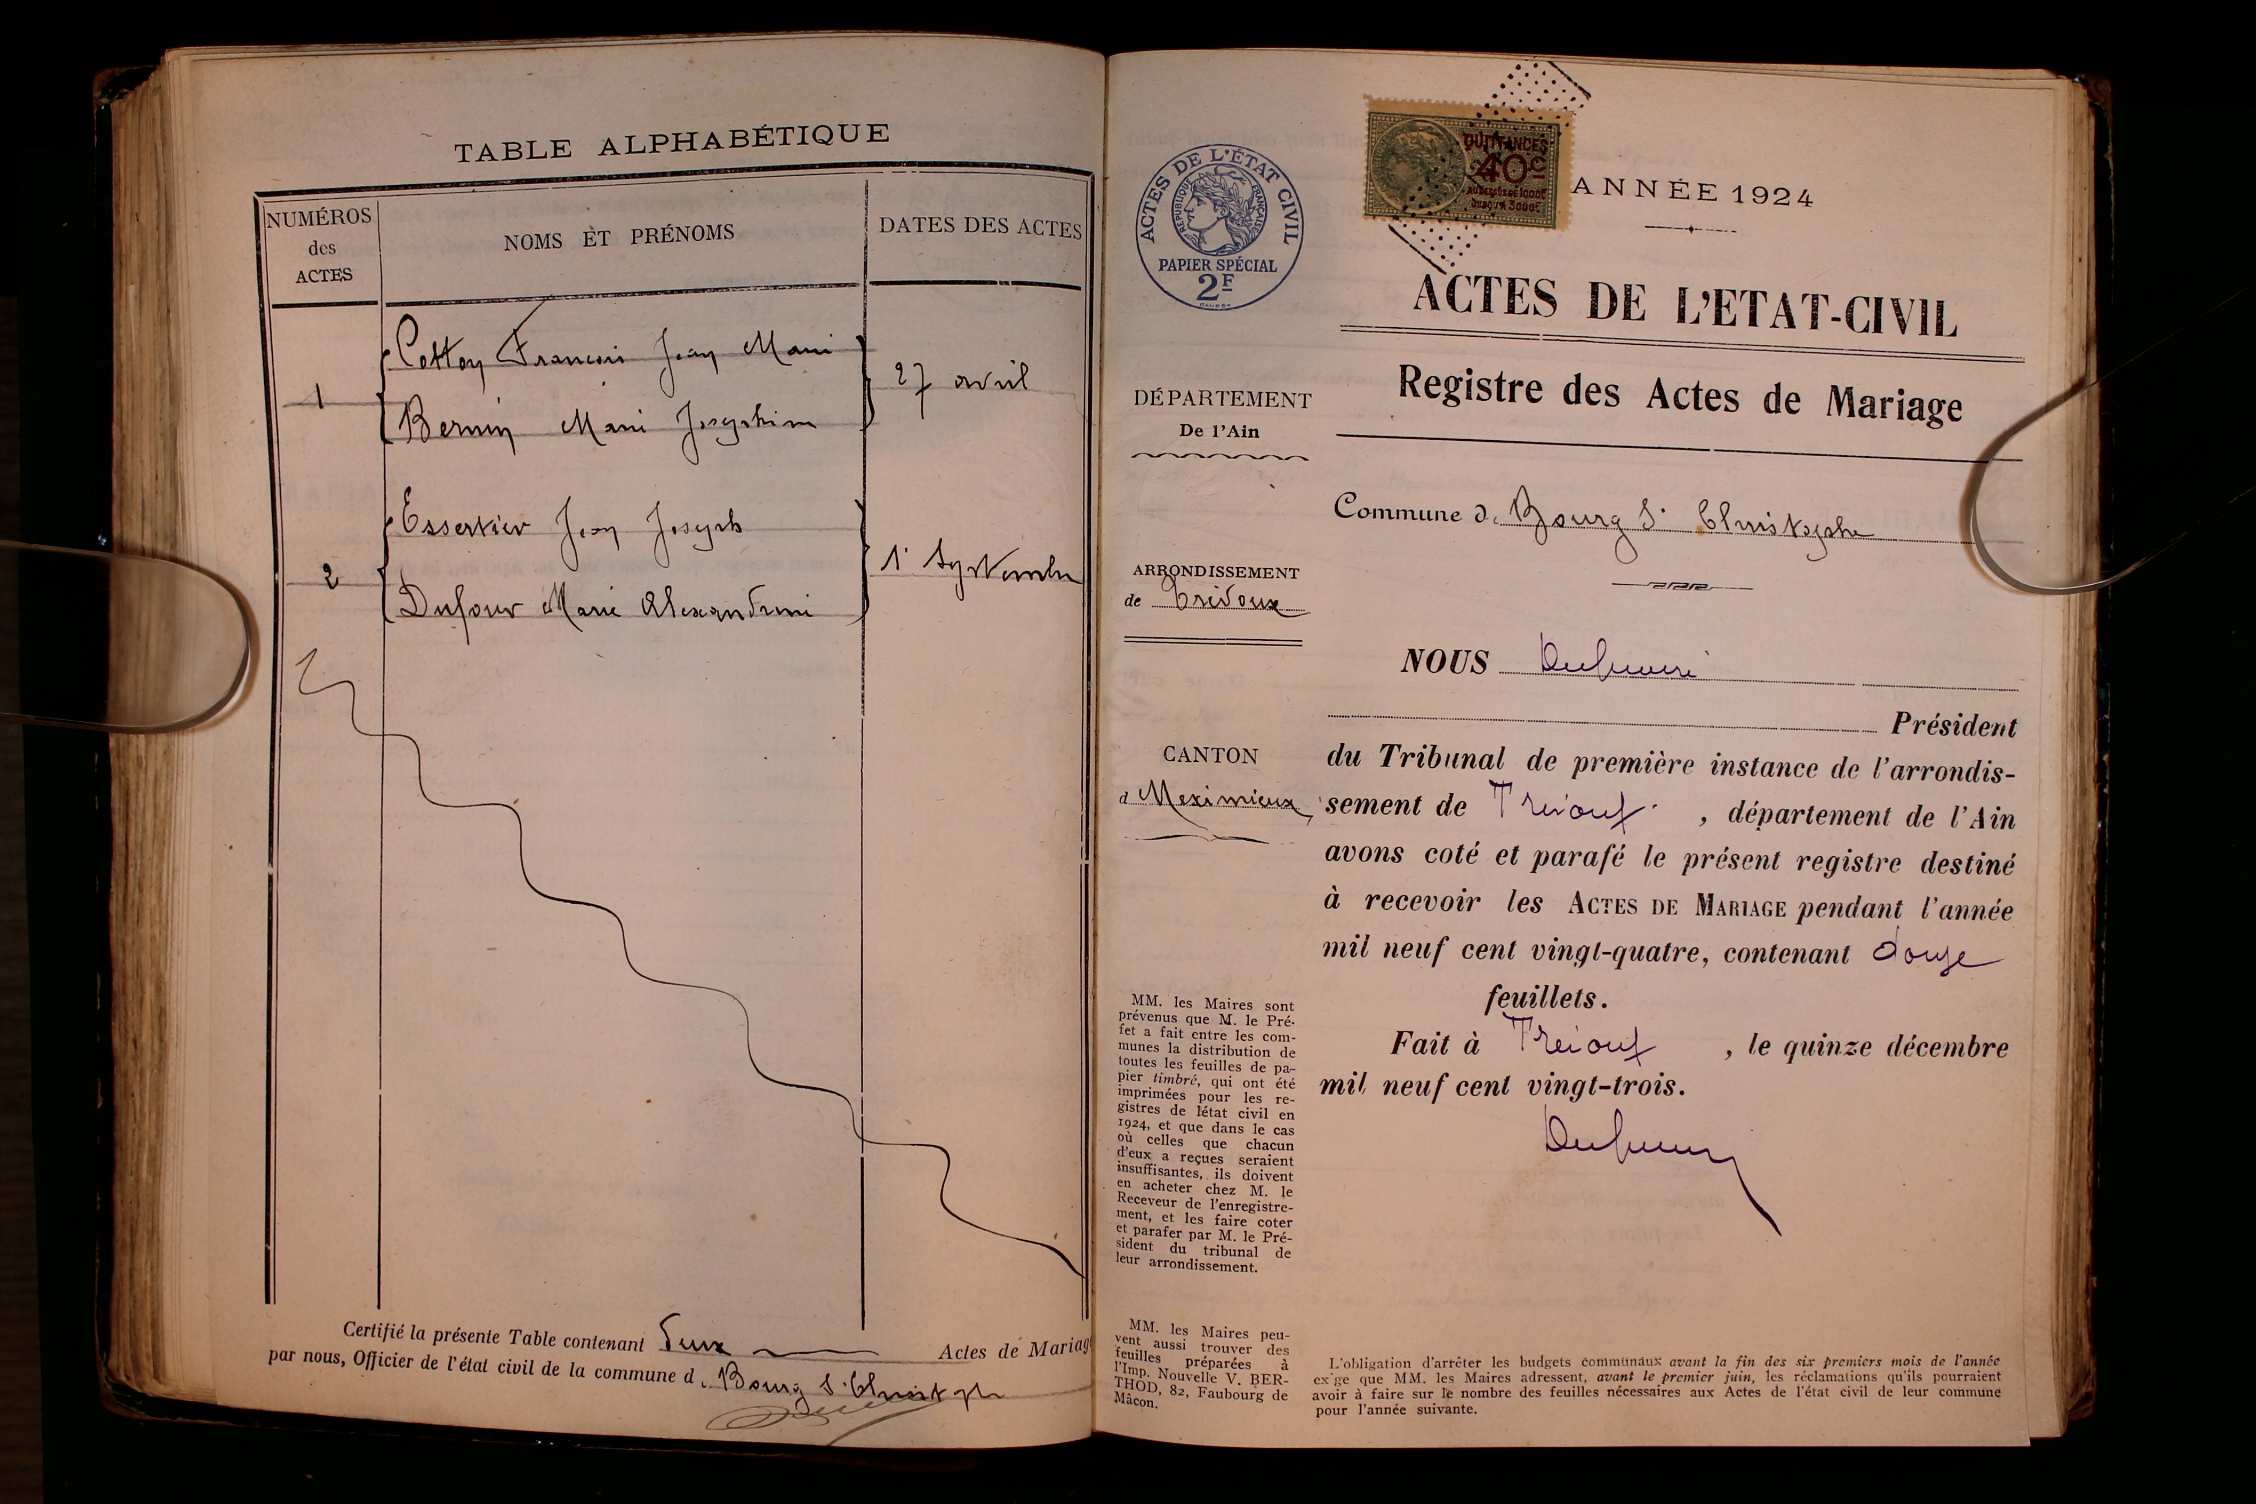 TABLE ALPHABÉTIQUE
NUMÉROS des ACTES
NOMS ET PRÉNOMS
DATES DES ACTES
1
Cotton François Jean Marie
Bernin Marie Josephine
27 avril
2
Essertier Jean Joseph
Dufour Marie Alexandrine
1er Septembre
Certifié la présente Table contenant deux Actes de Mariage
par nous, Officier de l'état civil de la commune d Bourg St Christophe
ACTES DE L'ÉTAT CIVIL
RÉPUBLIQUE FRANÇAISE
PAPIER SPÉCIAL
2F
QUITTANCES
40c
AU DESSUS DE 1000F
JUSQU'A 3000F
ANNÉE 1924
ACTES DE L'ETAT-CIVIL
Registre des Actes de Mariage
DÉPARTEMENT
De l'Ain
Commune de Bourg St Christophe
ARRONDISSEMENT
de Trévoux
CANTON
d Meximieux
NOUS
Président
du Tribunal de première instance de l'arrondis-
sement de Trévoux, département de l'Ain
avons coté et parafé le présent registre destiné
à recevoir les ACTES DE MARIAGE pendant l'année
mil neuf cent vingt-quatre, contenant douze
feuillets.
Fait à Trévoux, le quinze décembre
mil neuf cent vingt-trois.
MM. les Maires sont
prévenus que M. le Pré-
fet a fait entre les com-
munes la distribution de
toutes les feuilles de pa-
pier timbré, qui ont été
imprimées pour les re-
gistres de l'état civil en
1924, et que dans le cas
où celles que chacun
d'eux a reçues seraient
insuffisantes, ils doivent
en acheter chez M. le
Receveur de l'enregistre-
ment, et les faire coter
et parafer par M. le Pré-
sident du tribunal de
leur arrondissement.
MM. les Maires peu-
vent aussi trouver des
feuilles préparées à
l'Imp. Nouvelle V. BER-
THOD, 82, Faubourg de
Mâcon.
L'obligation d'arrêter les budgets communaux avant la fin des six premiers mois de l'année
exige que MM. les Maires adressent, avant le premier juin, les réclamations qu'ils pourraient
avoir à faire sur le nombre des feuilles nécessaires aux Actes de l'état civil de leur commune
pour l'année suivante.